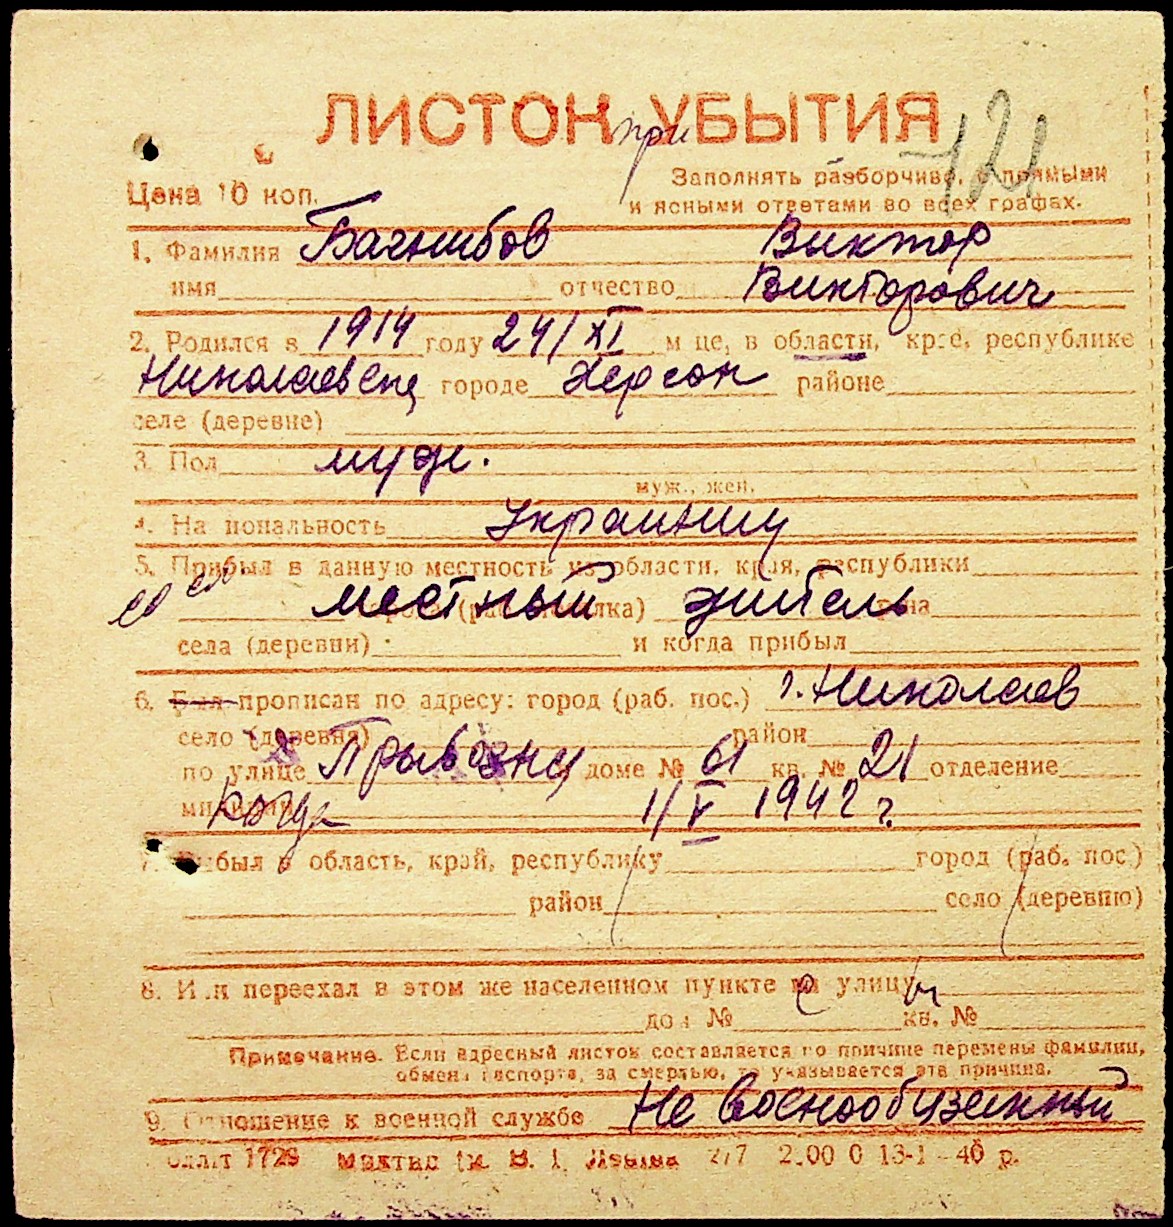 ЛИСТОК при УБЫТИЯ
121
Цена 10 коп.
Заполнять разборчиво, с прямыми
и ясными ответами во всех графах.
1. Фамилия Багнибов Виктор
имя отчество Викторович
2. Родился в 1914 году 24/XI м це, в области, крае, республике
Николаевск городе Херсон районе
селе (деревне)
3. Пол муж.
муж., жен.
4. На иональность Украинец
5. Прибыл в данную местность из области, края, республики
местный житель
села (деревни) и когда прибыл
6. Был прописан по адресу: город (раб. пос.) г. Николаев
село (деревня) район
по улице доме № 61 кв. № 21 отделение
милиции Когда 1/V 1942 г.
7. Выбыл в область, край, республику город (раб. пос.)
район село (деревню)
8. Или переехал в этом же населенном пункте на улицу
дом № кв. №
Примечание. Если адресный листок составляется по причине перемены фамилии,
обмена паспорта, за смертью, то указывается эта причина.
9. Отношение к военной службе Не военнообязанный
1729 2.00 0 13-1-40 р.